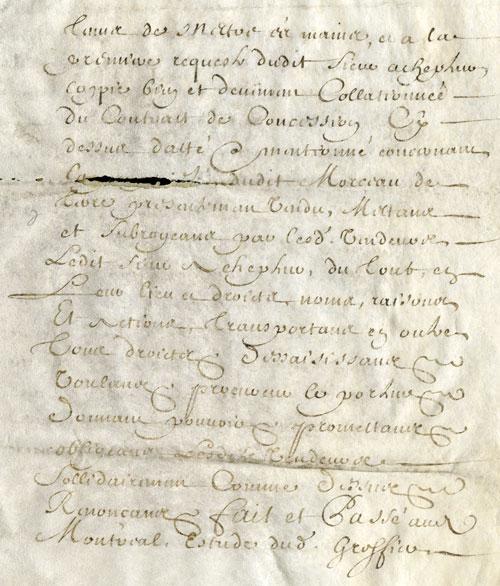 de mettre es mains, et a la
premiere requeste dudit sieur achepteur
coppie bien et deuement Collationnée
du Contrait de Concession Cy
dessus datté & mentionné concernant
dudit Morceau de
terre presentement Vendu, Mettans
et Subrogeans par lesd. Vendeurs
Ledit Sieur Achepteur, du tout, en
Leur lieu et droicts, noms, raisons
Et Actions, transportans en outre
tous droicts & Dessaississans &
Voulans & procureur le porteur &
Donnant pouvoir & promettans &
obligeans Lesdits Vendeurs
Sollidairement Comme Dessus &
Renonçans & fait et Passé aud.
Montreal Estude dud. Greffier